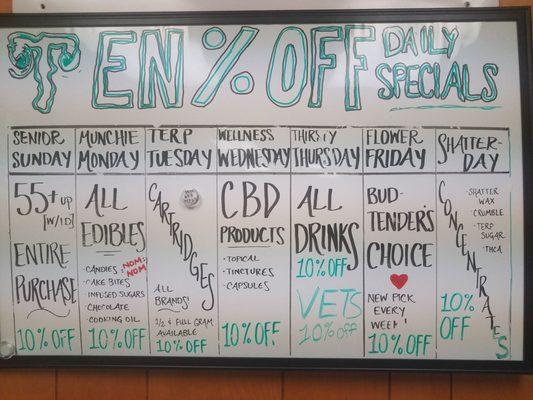 TEN % OFF
DAILY
SPECIALS
SENIOR
SUNDAY
55+ UP
[W/ID]
ENTIRE
PURCHASE
10% OFF
MUNCHIE
MONDAY
ALL
EDIBLES
· CANDIES
NOM
NOM
· CAKE BITES
INFUSED SUGARS
· CHOCOLATE
· COOKING OIL
10% OFF
TERP
TUESDAY
CARTRIDGES
ALL
BRANDS!
1/2 & FULL GRAM
AVAILABLE
10% OFF
WELLNESS
WEDNESDAY
CBD
PRODUCTS
· TOPICAL
· TINCTURES
· CAPSULES
10% OFF
THIRSTY
THURSDAY
ALL
DRINKS
10% OFF
VETS
10% OFF
FLOWER
FRIDAY
BUD-
TENDER'S
CHOICE
NEW PICK
EVERY
WEEK!
10% OFF
SHATTER-
DAY
CONCENTRATES
· SHATTER
WAX
· CRUMBLE
· TERP
SUGAR
· THCA
10%
OFF